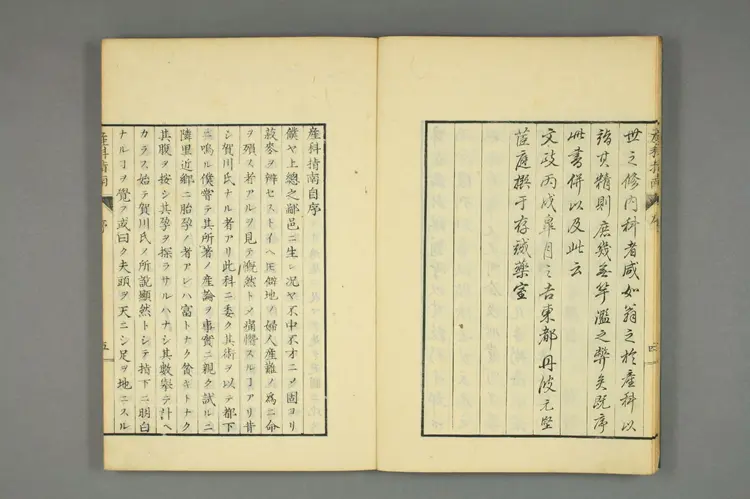 世之修内科者咸如翁之於産科以
詣其精則庶幾無竽濫之弊矣既序
此書併以及此云
文政丙戌皐月之吉東都丹波元堅
茝庭撰于存誠藥室
産科指南
序
四
産科指南自序
僕ヤ上總之鄙邑ニ生レ况ヤ不中不才ニメ固ヨリ
菽麥ヲ辨セストイヘ𪜈僻地ノ婦人産難ノ爲ニ命
ヲ殞ス者アルヲ見テ慨然トメ痛惜スルヿアリ昔シ
賀川氏ナル者アリ此科ニ委ク其術ヲ以テ都下
ニ鳴ル僕嘗テ其所著ノ産論ヲ事實ニ親ク試ルニ
隣里近郷ニ胎孕ノ者アレハ富トナク貧キトナク
其腹ヲ按シ其孕ヲ探ラサルハナシ其數擧テ計ヘ
カラス始テ賀川氏ノ所説顯然トシテ指下ニ明白
ナルヿヲ覺ヲ或曰ク夫頭ヲ天ニシ足ヲ地ニスル
産科指南
序
五